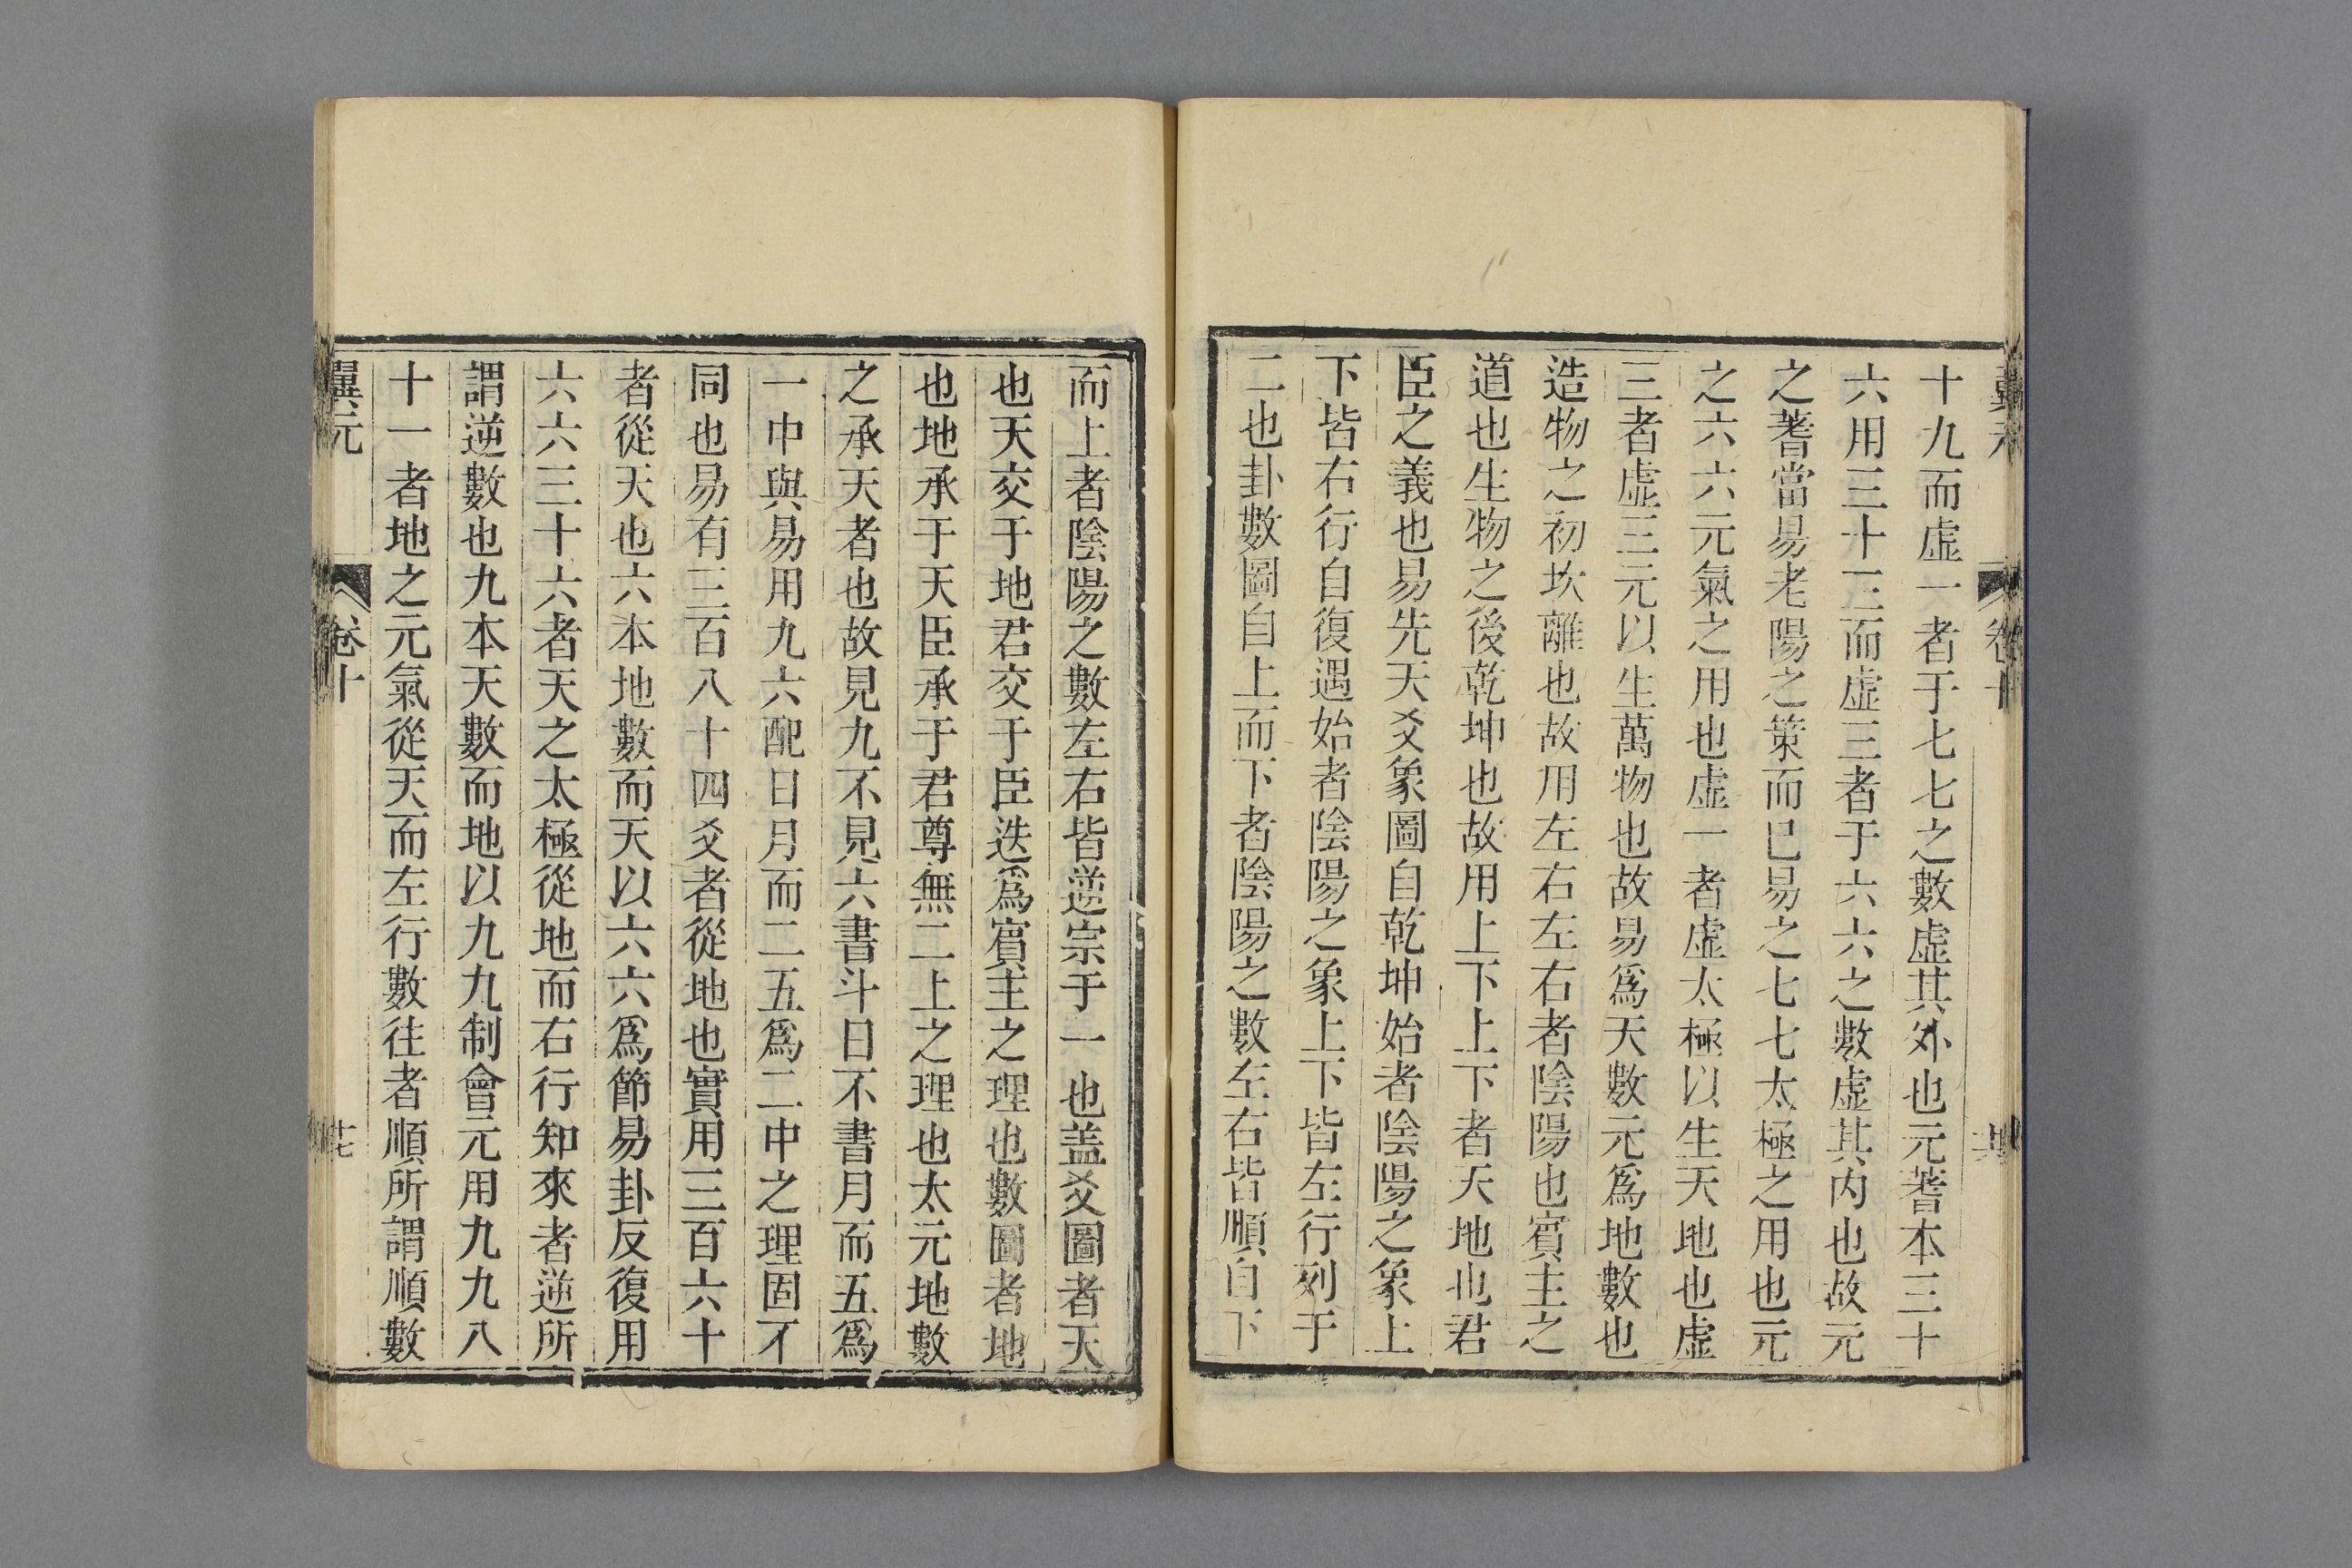 十九而虛一者于七七之數虛其外也元蓍本三十
六用三十三而虛三者于六六之數虛其內也故元
之蓍當易老陽之策而已易之七七太極之用也元
之六六元氣之用也虛一者虛太極以生天地也虛
三者虛三元以生萬物也故易爲天數元爲地數也
造物之初坎離也故用左右左右者陰陽也賓主之
道也生物之後乾坤也故用上下上下者天地也君
臣之義也易先天爻象圖自乾坤始者陰陽之象上
下皆右行自復遇始者陰陽之象上下皆左行列于
二也卦數圖自上而下者陰陽之數左右皆順自下
而上者陰陽之數左右皆逆宗于一也盖爻圖者天
也天交于地君交于臣迭爲賓主之理也數圖者地
也地承于天臣承于君尊無二上之理也太元地數
之承天者也故見九不見六書斗日不書月而五爲
一中與易用九六配日月而二五爲二中之理固不
同也易有三百八十四爻者從地也實用三百六十
者從天也六本地數而天以六六爲節易卦反復用
六六三十六者天之太極從地而右行知來者逆所
謂逆數也九本天數而地以九九制會元用九九八
十一者地之元氣從天而左行數往者順所謂順數
翼元
卷十
廿七